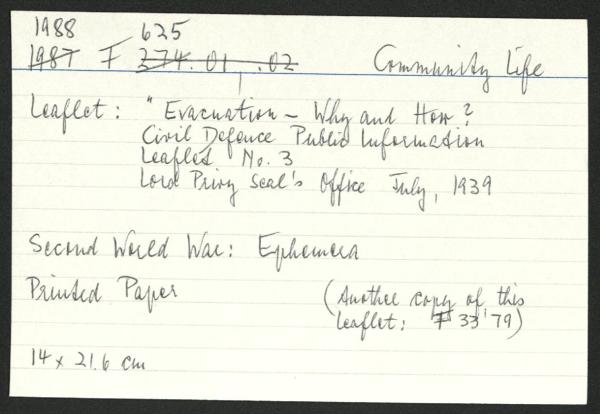 1988 625
1987 F 274.01 .02 Community Life
Leaflet: "Evacuation – Why and How?
Civil Defence Public Information
Leaflet No. 3
Lord Privy Seal's Office July, 1939
Second World War: Ephemera
Printed Paper (Another copy of this
leaflet: F 33'79)
14 x 21.6 cm